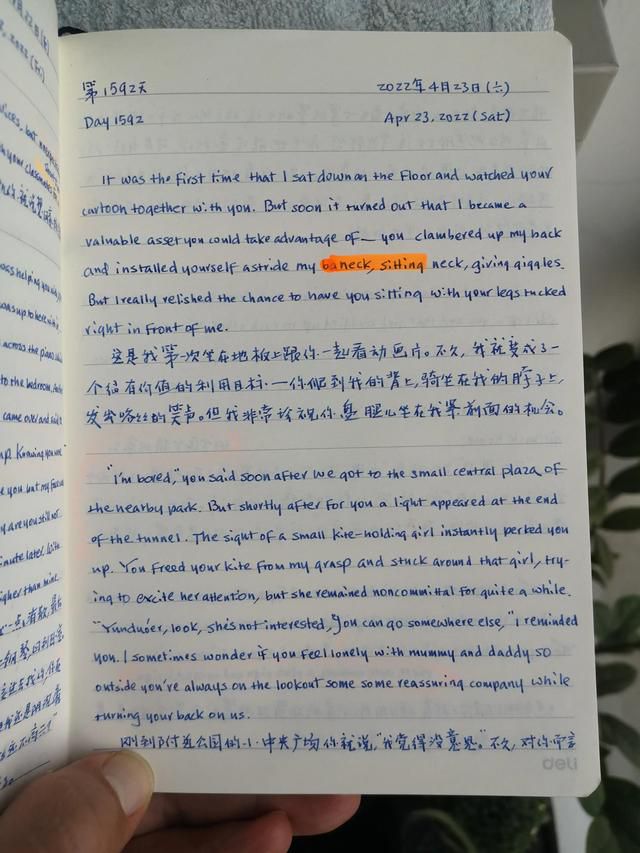 第1592天 2022年4月23日(六)
Day 1592 Apr 23, 2022 (Sat)
It was the first time that I sat down on the floor and watched your
cartoon together with you. But soon it turned out that I became a
valuable asset you could take advantage of — you clambered up my back
and installed yourself astride my baneck, sitting neck, giving giggles.
But I really relished the chance to have you sitting with your legs tucked
right in front of me.
这是我第一次坐在地板上跟你一起看动画片。不久，我就变成了一
个很有价值的利用目标——你爬到我的背上，骑坐在我的脖子上，
发出咯丝的笑声。但我非常珍视你盘腿儿坐在我紧前面的机会。
"I'm bored," you said soon after we got to the small central plaza of
the nearby park. But shortly after for you a light appeared at the end
of the tunnel. The sight of a small kite-holding girl instantly perked you
up. You freed your kite from my grasp and stuck around that girl, try-
ing to excite her attention, but she remained noncommittal for quite a while.
"Yunduoer, look, she's not interested, you can go somewhere else," I reminded
you. I sometimes wonder if you feel lonely with mummy and daddy so
outside you're always on the lookout some some reassuring company while
turning your back on us.
刚到附近公园的小中央广场你就说，"我觉得没意思。"不久，对你而言
deli
across the piano
to the bedroom,
came over and
up. Knowing you
you but my
y are you still not
minute later.
higher than mine